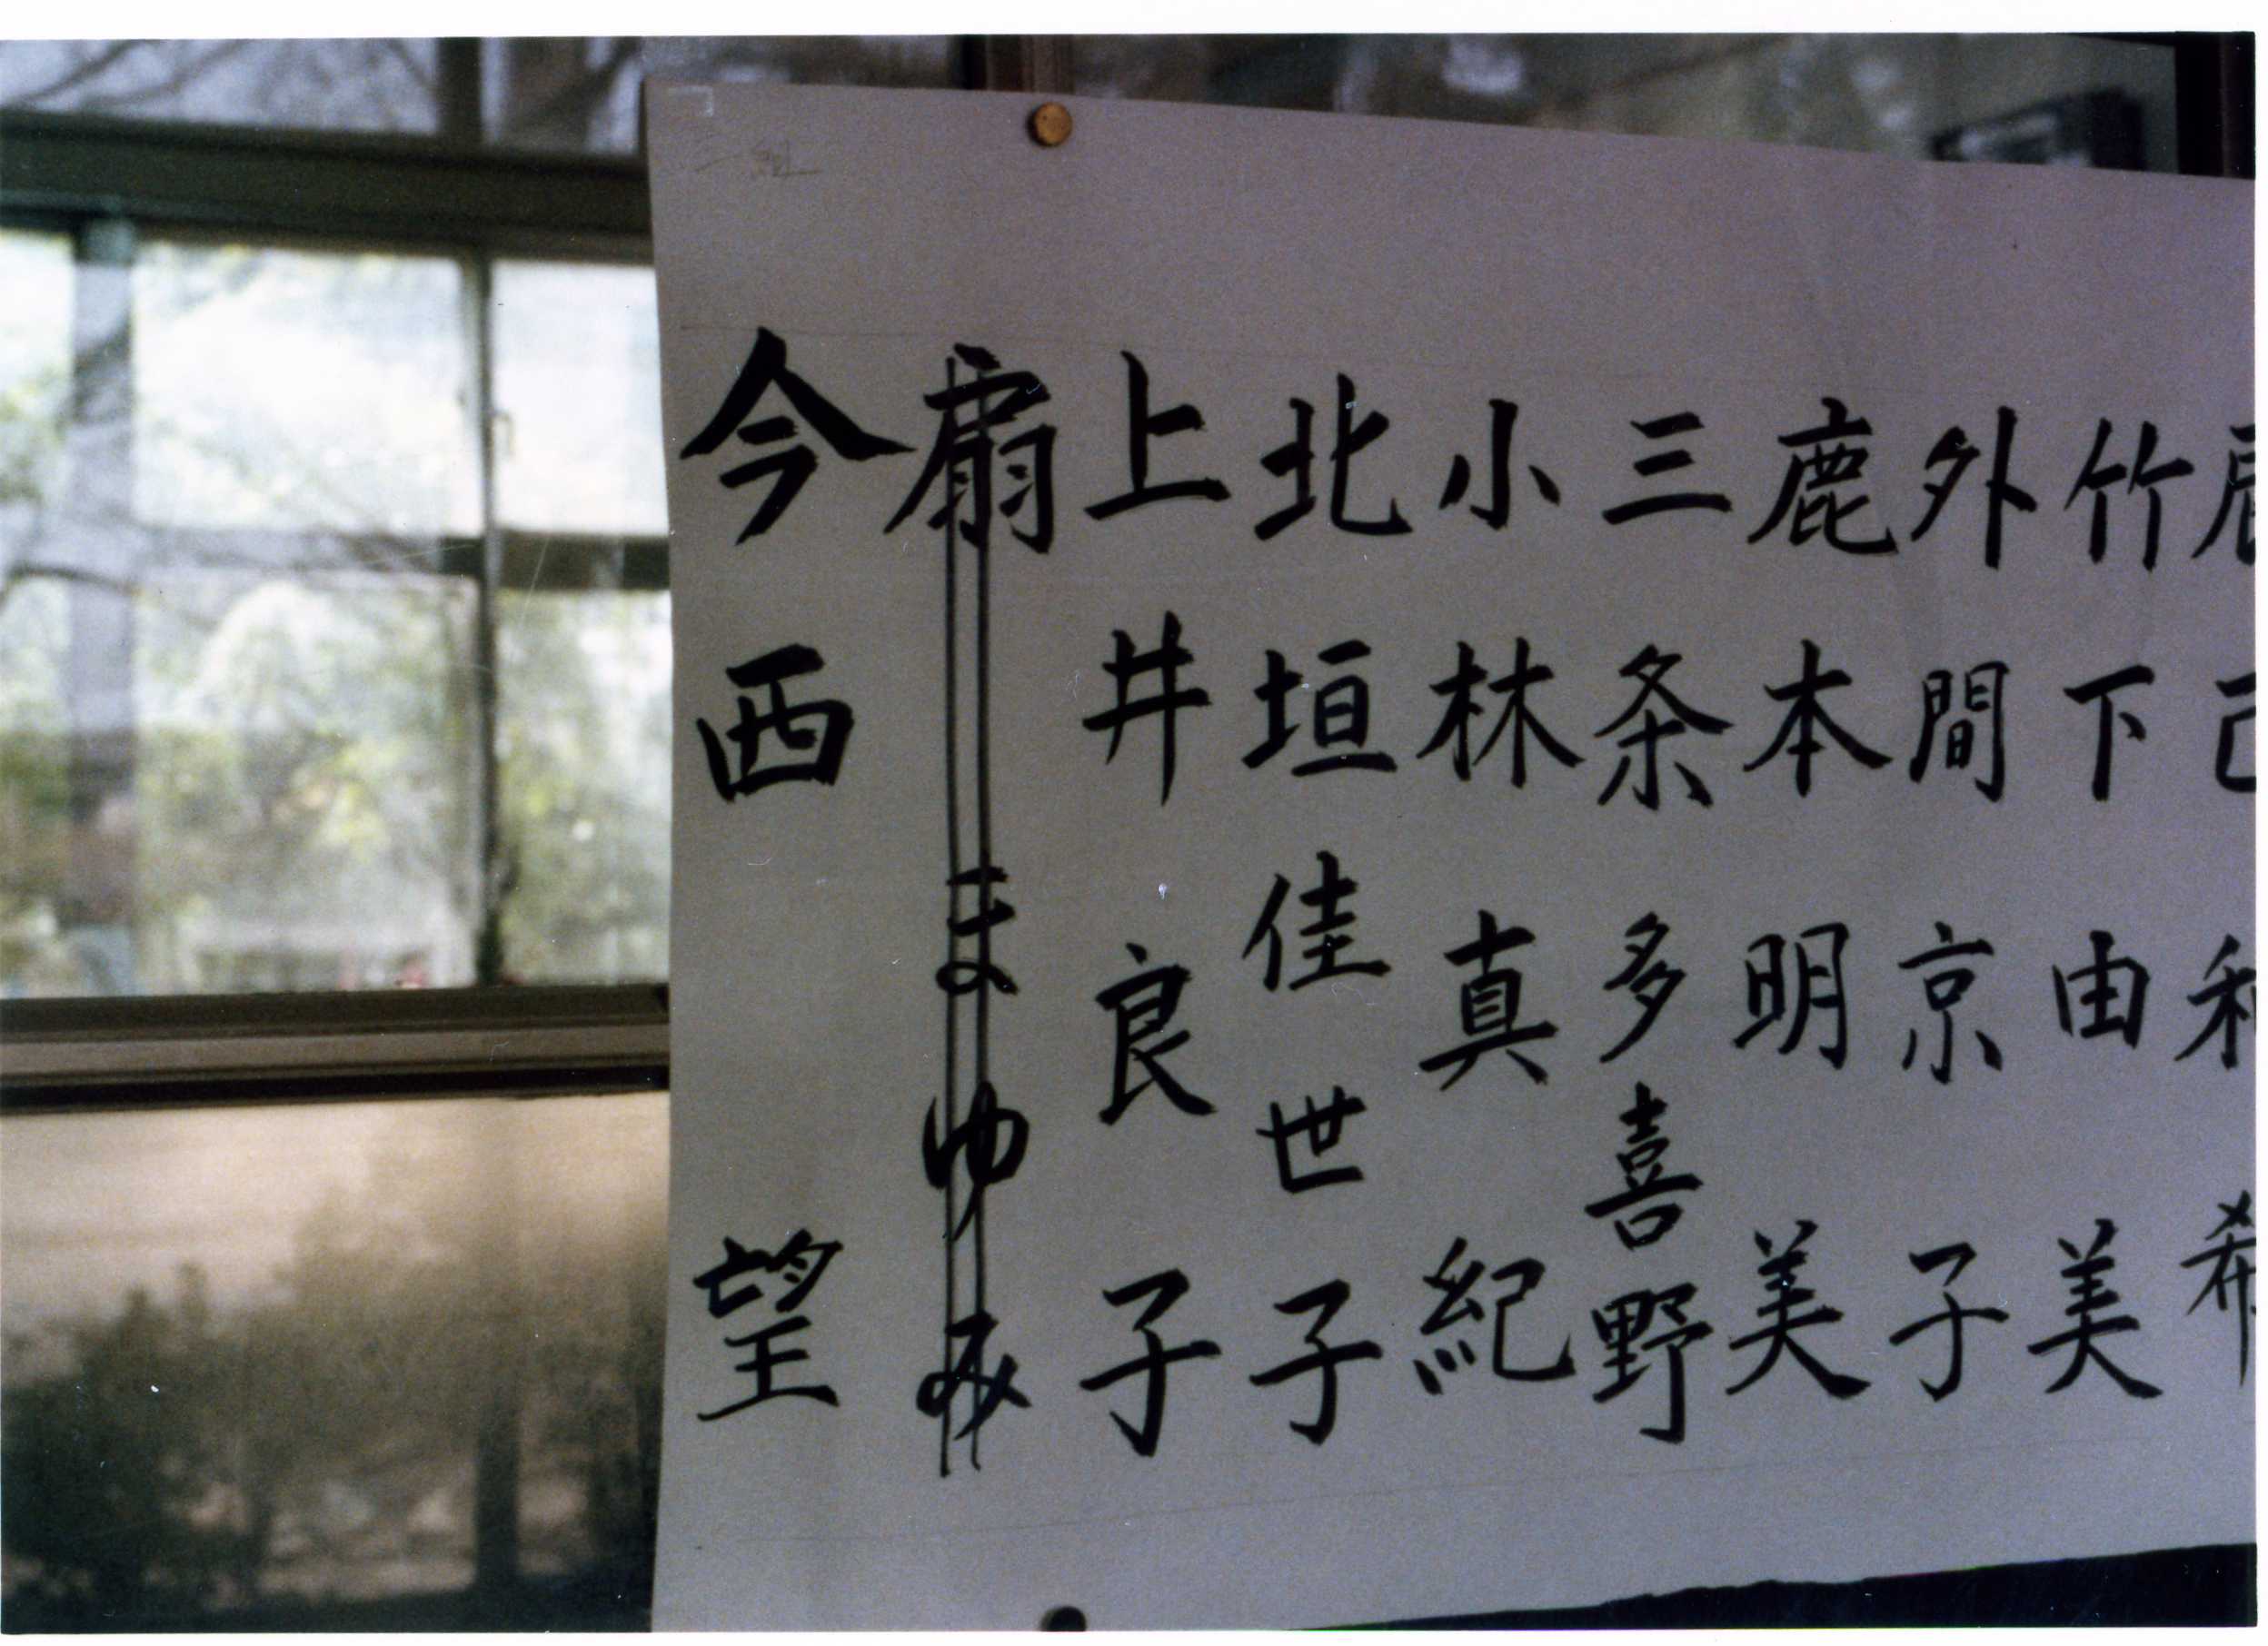 辰己和希
竹下由美
外間京子
鹿本明美
三条多喜野
小林真紀
北垣佳世子
上井良子
扇まゆみ
今西望